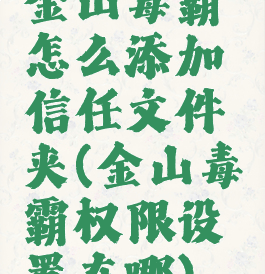 金山毒霸
怎么添加
信任文件
夹(金山毒
霸权限设
置在哪)